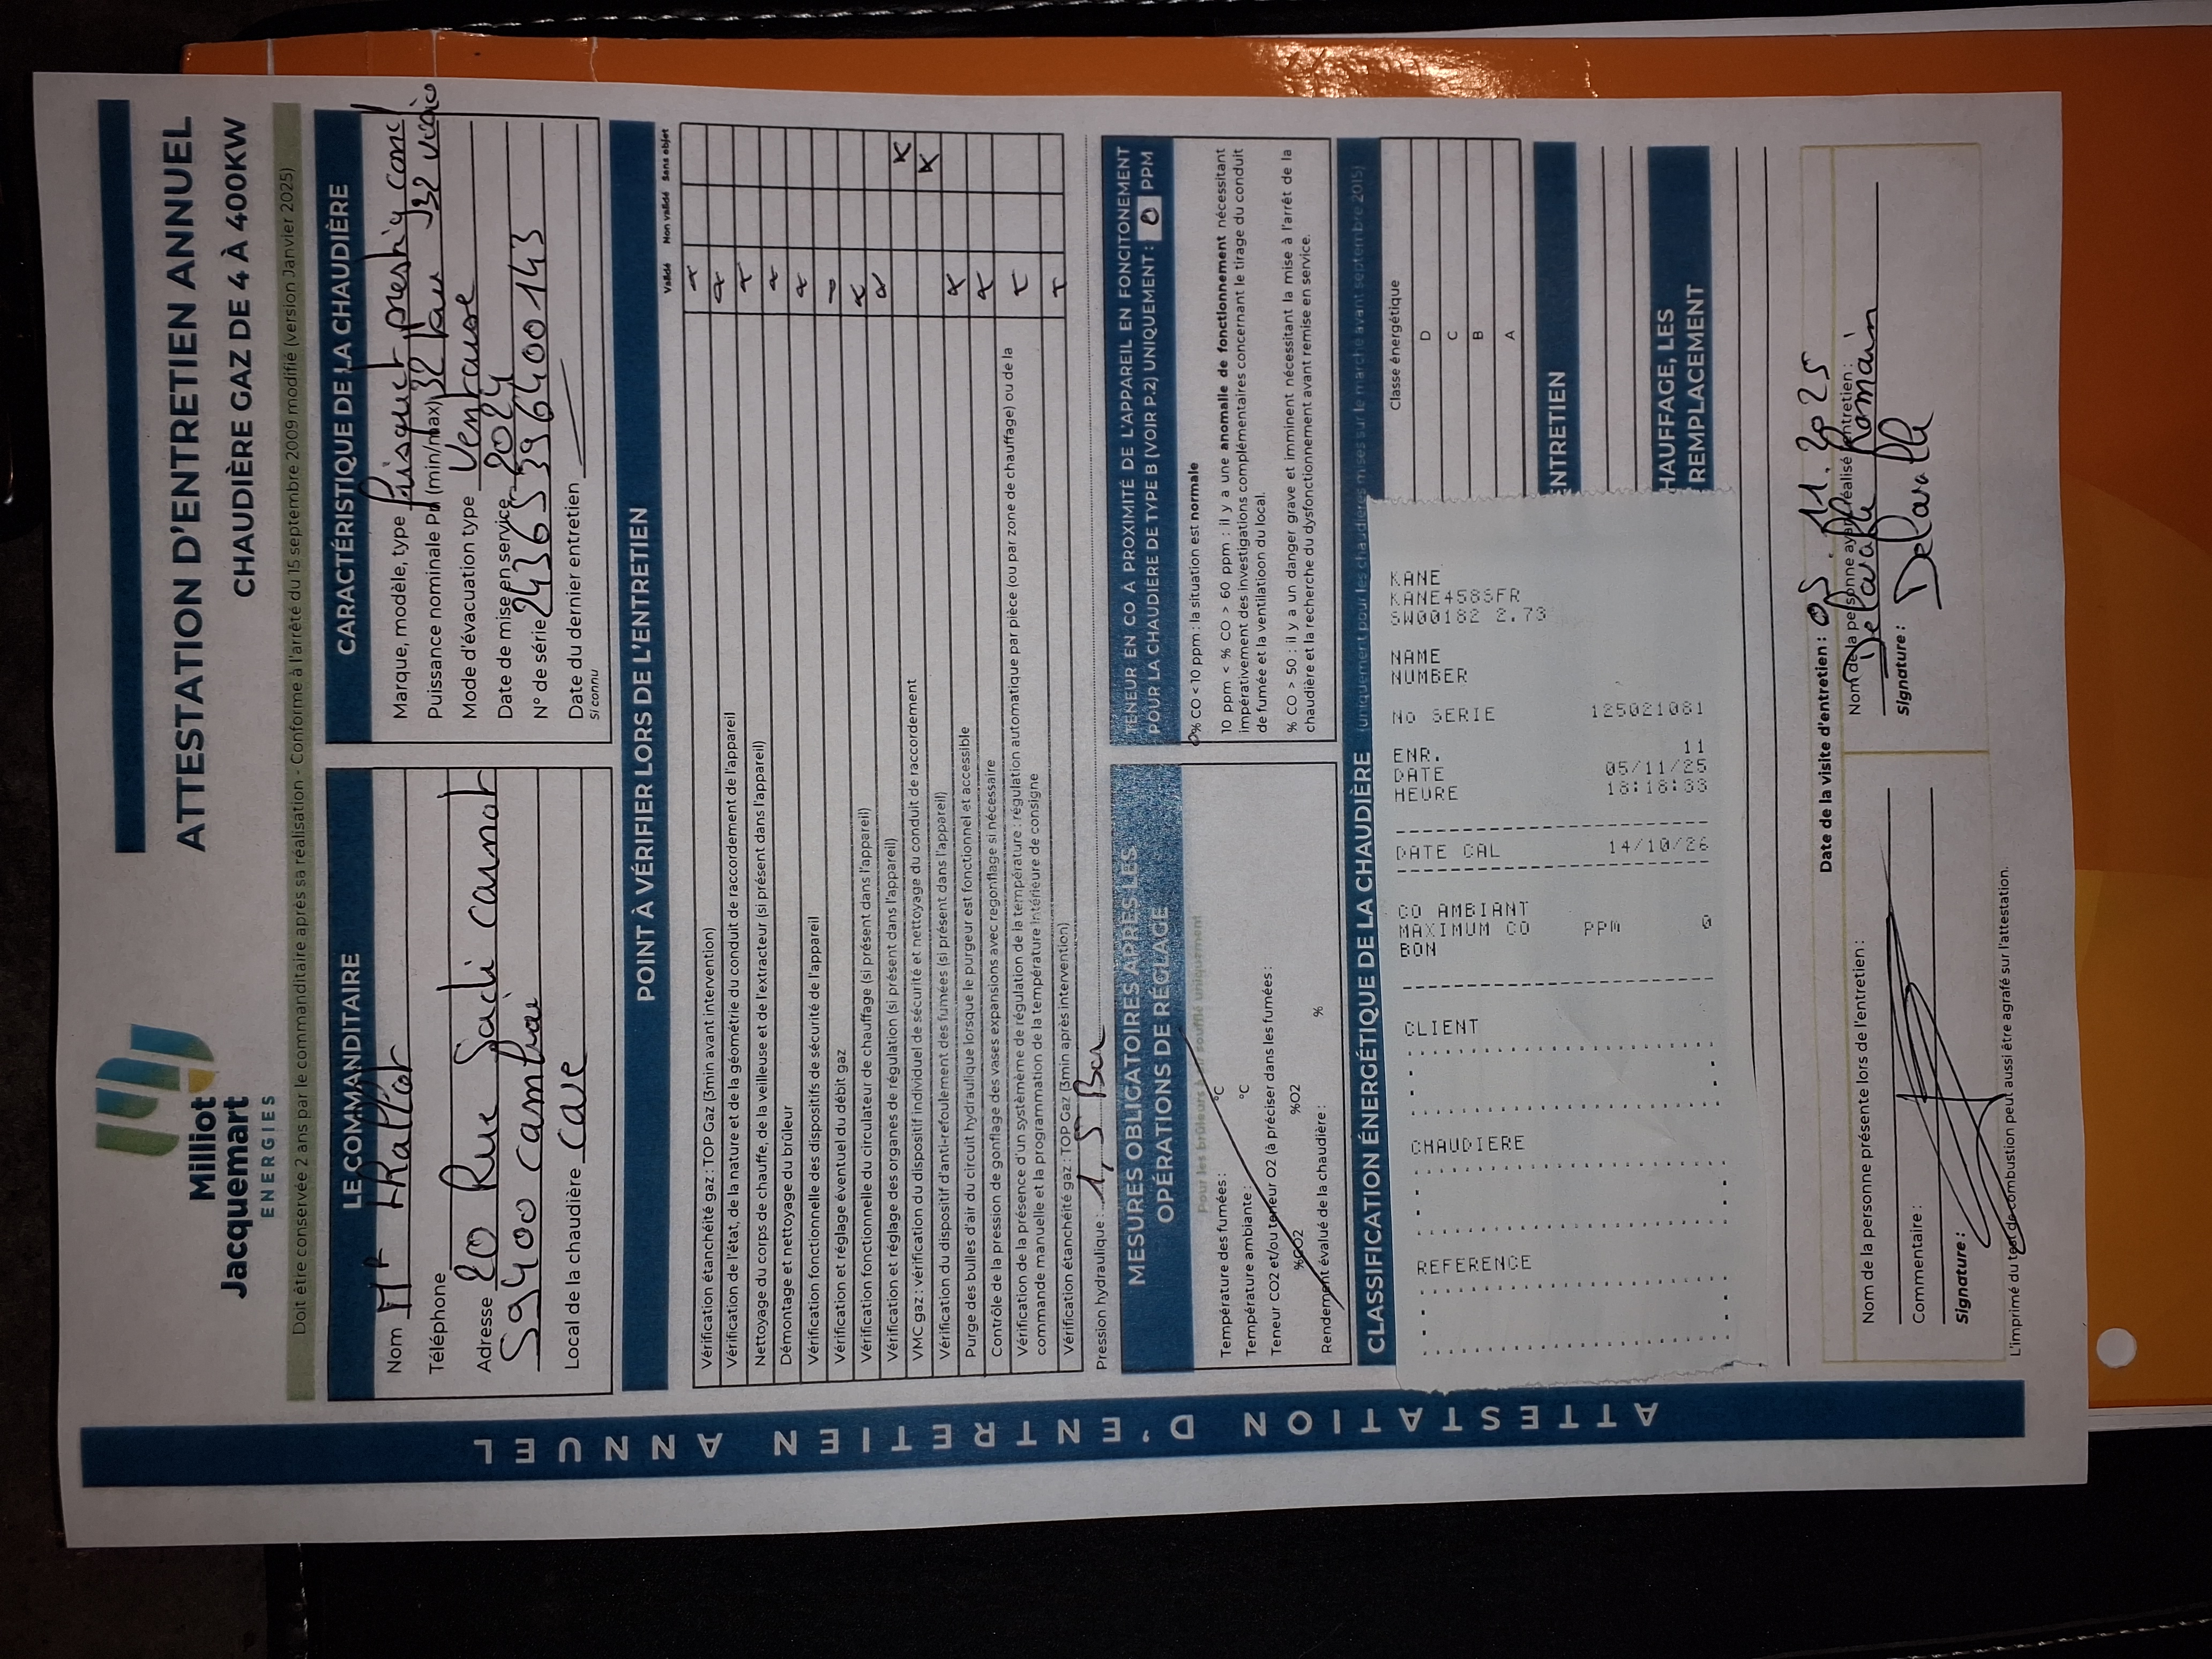 Milliot
Jacquemart
ENERGIES
ATTESTATION D'ENTRETIEN ANNUEL
CHAUDIÈRE GAZ DE 4 À 400KW
Doit être conservée 2 ans par le commanditaire après sa réalisation - Conforme à l'arrêté du 15 septembre 2009 modifié (version Janvier 2025)
ATTESTATION D'ENTRETIEN ANNUEL
LE COMMANDITAIRE
Nom Mr
Téléphone
Adresse 20 Rue Sadi carnot
59400 cambrai
Local de la chaudière cave
CARACTÉRISTIQUE DE LA CHAUDIÈRE
Marque, modèle, type frisquet prestige cond
Puissance nominale Pn (min/max) 32 kw J32
Mode d'évacuation type Ventouse
Date de mise en service 2024
N° de série
Date du dernier entretien
Si connu
POINT À VÉRIFIER LORS DE L'ENTRETIEN
Validé Non validé Sans objet
Vérification étanchéité gaz : TOP Gaz (3min avant intervention) x
Vérification de l'état, de la nature et de la géométrie du conduit de raccordement de l'appareil x
Nettoyage du corps de chauffe, de la veilleuse et de l'extracteur (si présent dans l'appareil) x
Démontage et nettoyage du brûleur x
Vérification fonctionnelle des dispositifs de sécurité de l'appareil x
Vérification et réglage éventuel du débit gaz
Vérification fonctionnelle du circulateur de chauffage (si présent dans l'appareil) x
Vérification et réglage des organes de régulation (si présent dans l'appareil) x
VMC gaz : vérification du dispositif individuel de sécurité et nettoyage du conduit de raccordement x
Vérification du dispositif d'anti-refoulement des fumées (si présent dans l'appareil) x
Purge des bulles d'air du circuit hydraulique lorsque le purgeur est fonctionnel et accessible x
Contrôle de la pression de gonflage des vases expansions avec regonflage si nécessaire x
Vérification de la présence d'un systèmème de régulation de la température : régulation automatique par pièce (ou par zone de chauffage) ou de la
commande manuelle et la programmation de la température intérieure de consigne x
Vérification étanchéité gaz : TOP Gaz (3min après intervention) x
Pression hydraulique : 1,5 Bar
MESURES OBLIGATOIRES APRÈS LES
OPÉRATIONS DE RÉGLAGE
Pour les brûleurs à air soufflé uniquement
Température des fumées : °C
Température ambiante : °C
Teneur CO2 et/ou teneur O2 (à préciser dans les fumées :
%CO2 %O2
Rendement évalué de la chaudière : %
TENEUR EN CO À PROXIMITÉ DE L'APPAREIL EN FONCITONEMENT
POUR LA CHAUDIÈRE DE TYPE B (VOIR P.2) UNIQUEMENT : 0 PPM
% CO < 10 ppm : la situation est normale
10 ppm < % CO > 60 ppm : il y a une anomalie de fonctionnement nécessitant
impérativement des investigations complémentaires concernant le tirage du conduit
de fumée et la ventilatioon du local.
% CO > 50 : il y a un danger grave et imminent nécessitant la mise à l'arrêt de la
chaudière et la recherche du dysfonctionnement avant remise en service.
CLASSIFICATION ÉNERGÉTIQUE DE LA CHAUDIÈRE (uniquement pour les chaudières mises sur le marché avant septembre 2015)
Classe énergétique
D
C
B
A
NTRETIEN
HAUFFAGE, LES
REMPLACEMENT
KANE
SW00182 2.73
NAME
NUMBER
No SERIE 125021081
ENR. 11
DATE 05/11/25
HEURE
DATE CAL 14/10/26
CO AMBIANT
MAXIMUM CO PPM 0
BON
CLIENT
CHAUDIERE
REFERENCE
Date de la visite d'entretien : 05.11.2025
Nom de la personne présente lors de l'entretien :
Commentaire :
Signature :
Nom de la personne ayant réalisé l'entretien :
Romain
Signature :
L'imprimé du test de combustion peut aussi être agrafé sur l'attestation.